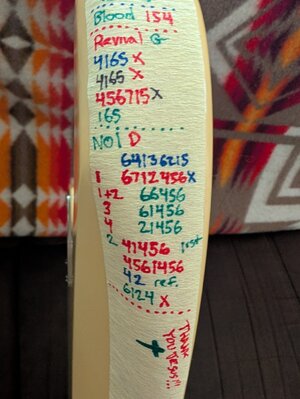 Blood 154
Revival G
4165 X
4165 X
456715 X
165
NO1 D
64136215
1 6712456 X
1+2 66456
3 61456
4 21456
2 41456 inst
4561456
42 ref.
6124 X
THANK
YOU JESUS!!!